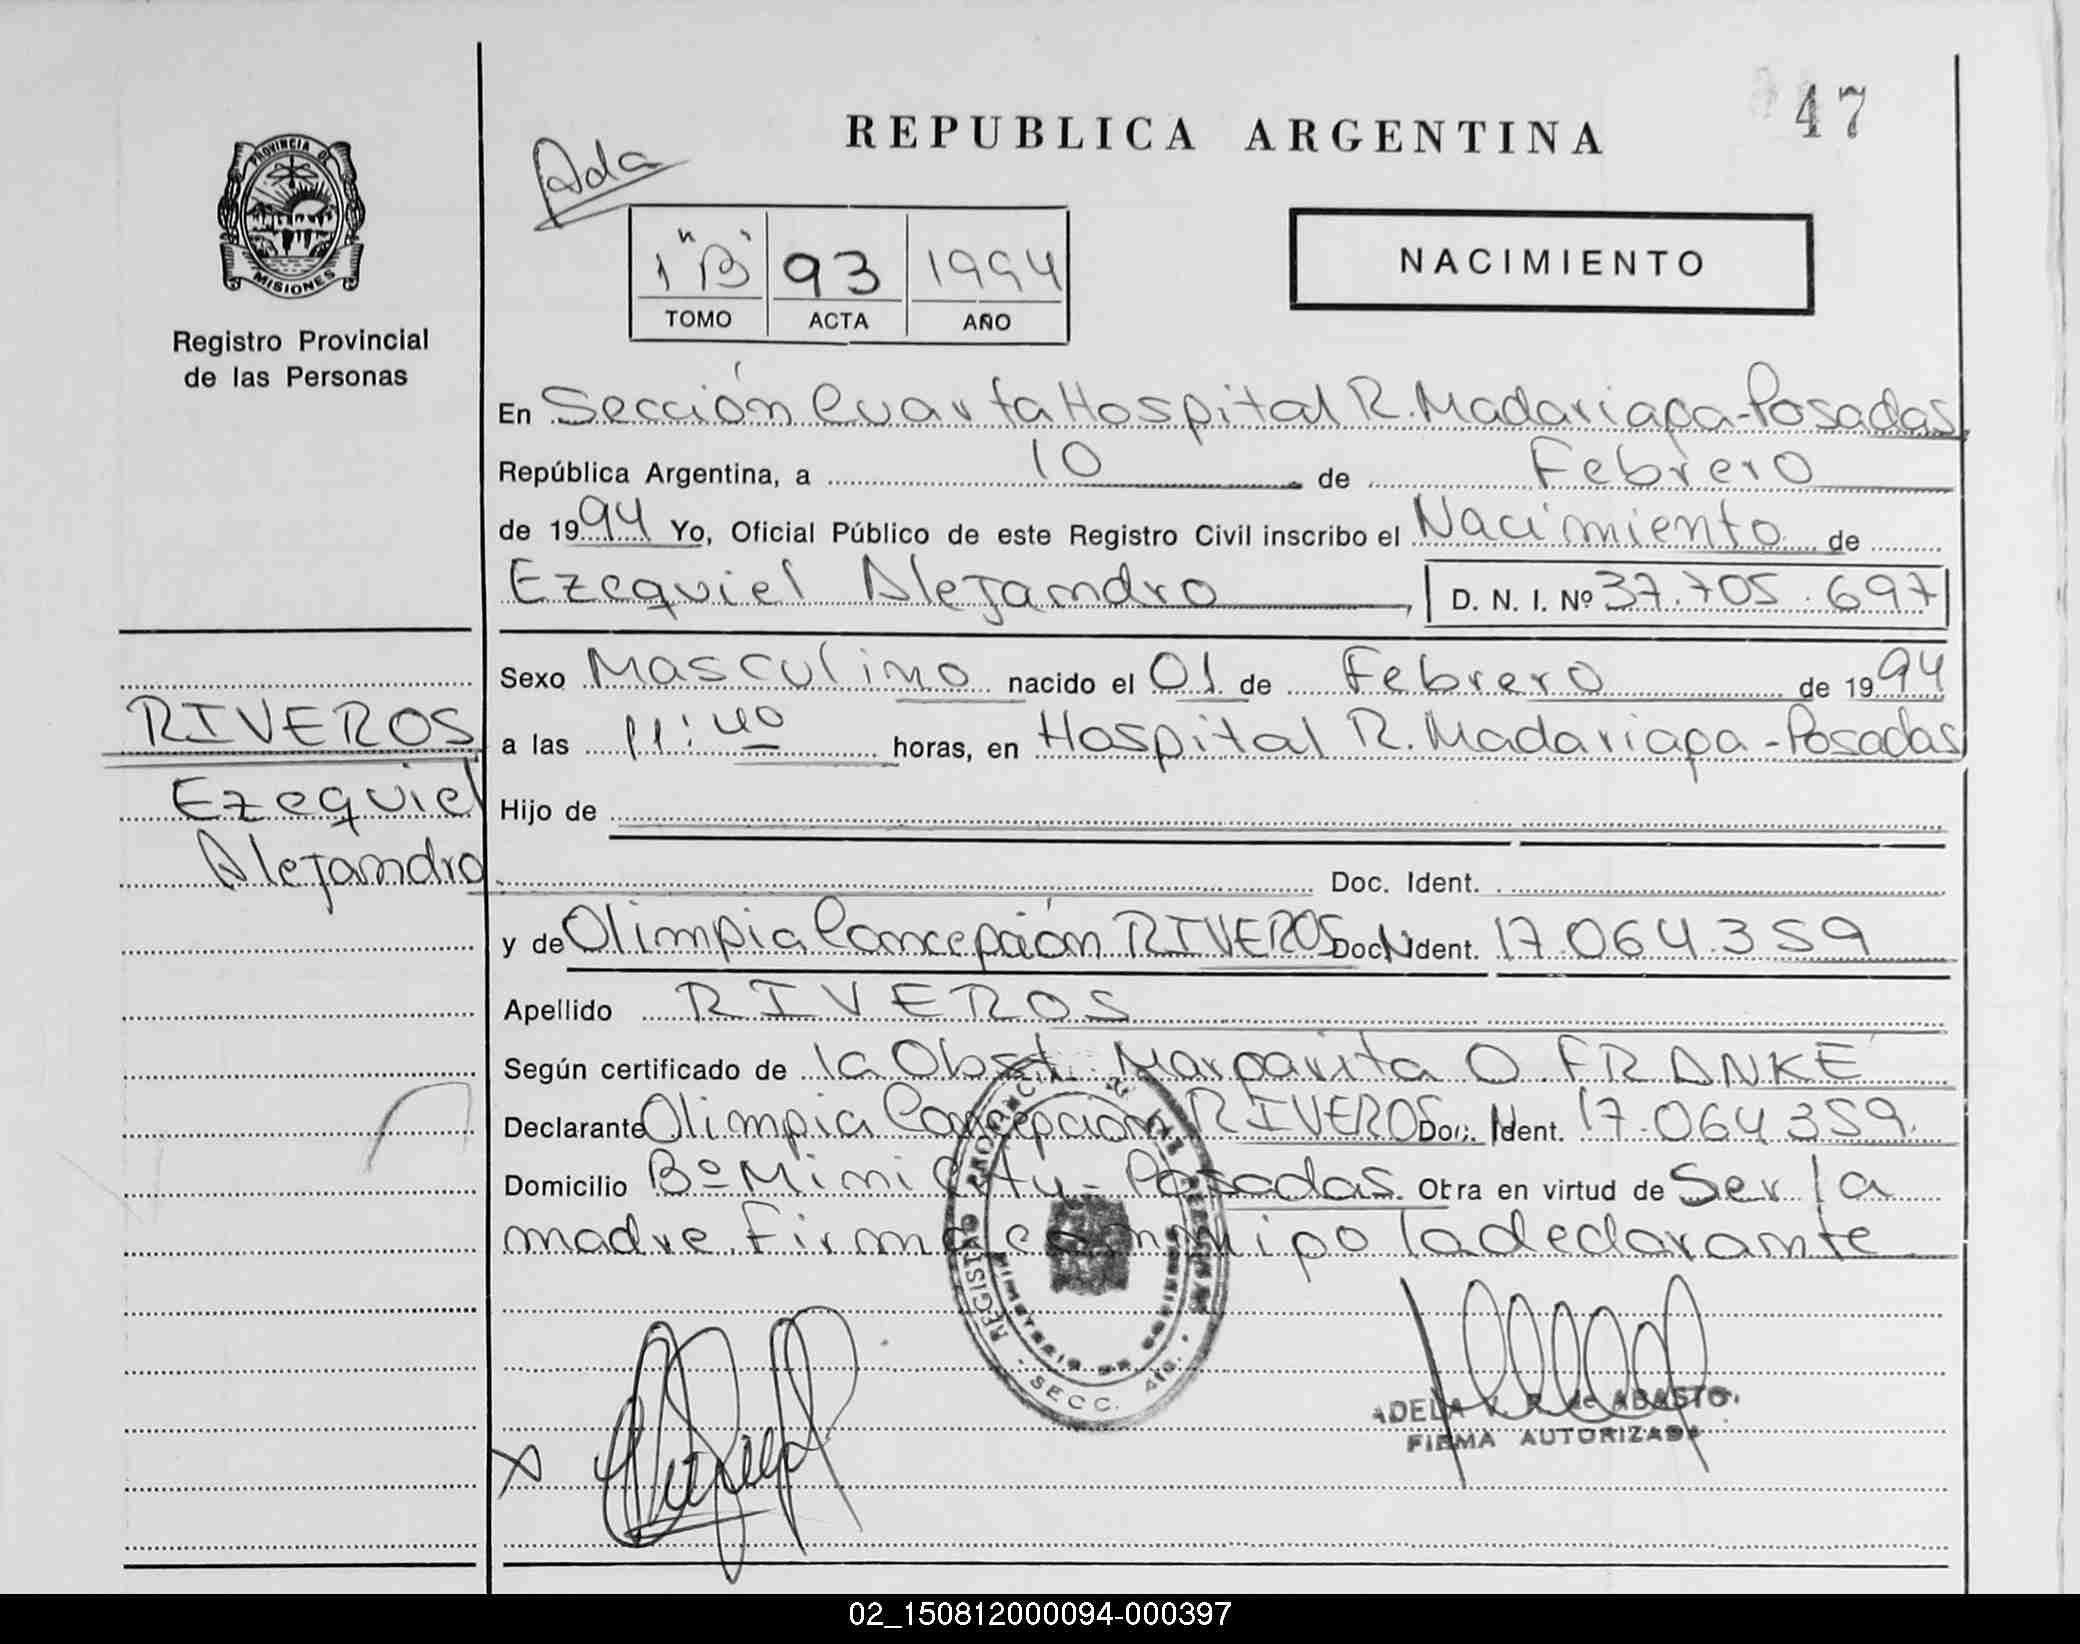 47
REPUBLICA ARGENTINA
Ada
PROVINCIA DE
MISIONES
1 "B" 93 1994
TOMO ACTA AÑO
NACIMIENTO
Registro Provincial
de las Personas
En Sección Cuarta Hospital R. Madariaga - Posadas
República Argentina, a 10 de Febrero
de 1994 Yo, Oficial Público de este Registro Civil inscribo el Nacimiento de
Ezequiel Alejandro, D. N. I. Nº 37.705.697
Sexo Masculino nacido el 01 de Febrero de 1994
RIVEROS
Ezequiel
Alejandro
a las 11:40 horas, en Hospital R. Madariaga - Posadas
Hijo de
Doc. Ident.
y de Olimpia Concepción RIVEROS Doc. Ident. 17.064.359
Apellido RIVEROS
Según certificado de la Obst. Margarita O. FRANKE
Declarante Olimpia Concepción RIVEROS Doc. Ident. 17.064.359
Domicilio Bº Mini City - Posadas. Obra en virtud de Ser la
madre. Firma conmigo la declarante
SECC. 4ta.
ADELA V. R. de ABASTO
FIRMA AUTORIZADA
02_150812000094-000397